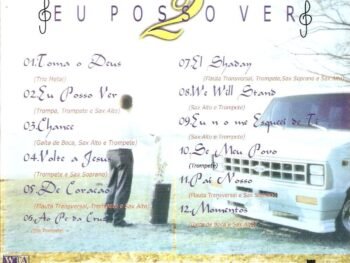 EU POSSO VER
2
01.Toma o Deus
(Trio Metal)
02.Eu Posso Ver
(Trompa, Trompete e Sax Alto)
03.Chance
(Gaita de Boca, Sax Alto e Trompete)
04.Volte a Jesus
(Trompete e Sax Soprano)
05.De Coração
(Flauta Transversal, Trompete e Sax Alto)
06.Ao Pe da Cruz
(Trio Trompete)
07.El Shaday
(Flauta Transversal, Trompete,Sax Soprano e Sax Alto)
08.We Will Stand
(Sax Alto e Trompete)
09.Eu n o me Esqueci de Ti
(Sax Alto e Trompete)
10.Se Meu Povo
(Trompete)
11.Pai Nosso
(Flauta Transversal e Sax Soprano)
12.Momentos
(Gaita de Boca e Sax Alto)